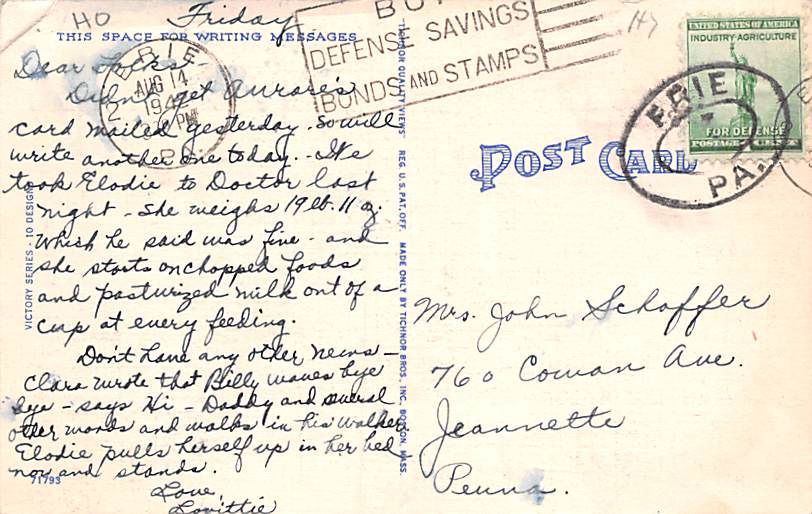 HO
Friday
THIS SPACE FOR WRITING MESSAGES
Dear Folks -
Didn't get Aurore's
card mailed yesterday. So will
write another one today. We
took Elodie to Doctor last
night - she weighs 19 lb. 11 oz.
Which he said was fine - and
she starts on chopped foods
and pasturized milk out of a
cup at every feeding.
Don't have any other news -
Clara wrote that Billy waves bye
bye - says Hi - Daddy and several
other words and walks in his walker.
Elodie pulls herself up in her bed
now and stands.
Love,
Lovittie
71793
VICTORY SERIES - 10 DESIGNS
"TICHNOR QUALITY VIEWS" REG. U.S. PAT. OFF. MADE ONLY BY TICHNOR BROS., INC., BOSTON, MASS.
ERIE
AUG 14
PM
PA.
BUY
DEFENSE SAVINGS
BONDS AND STAMPS
UNITED STATES OF AMERICA
INDUSTRY-AGRICULTURE
FOR DEFENSE
POSTAGE
ERIE
PA.
POST CARD
Mrs. John Schaffer
760 Cowan Ave.
Jeannette
Penna.